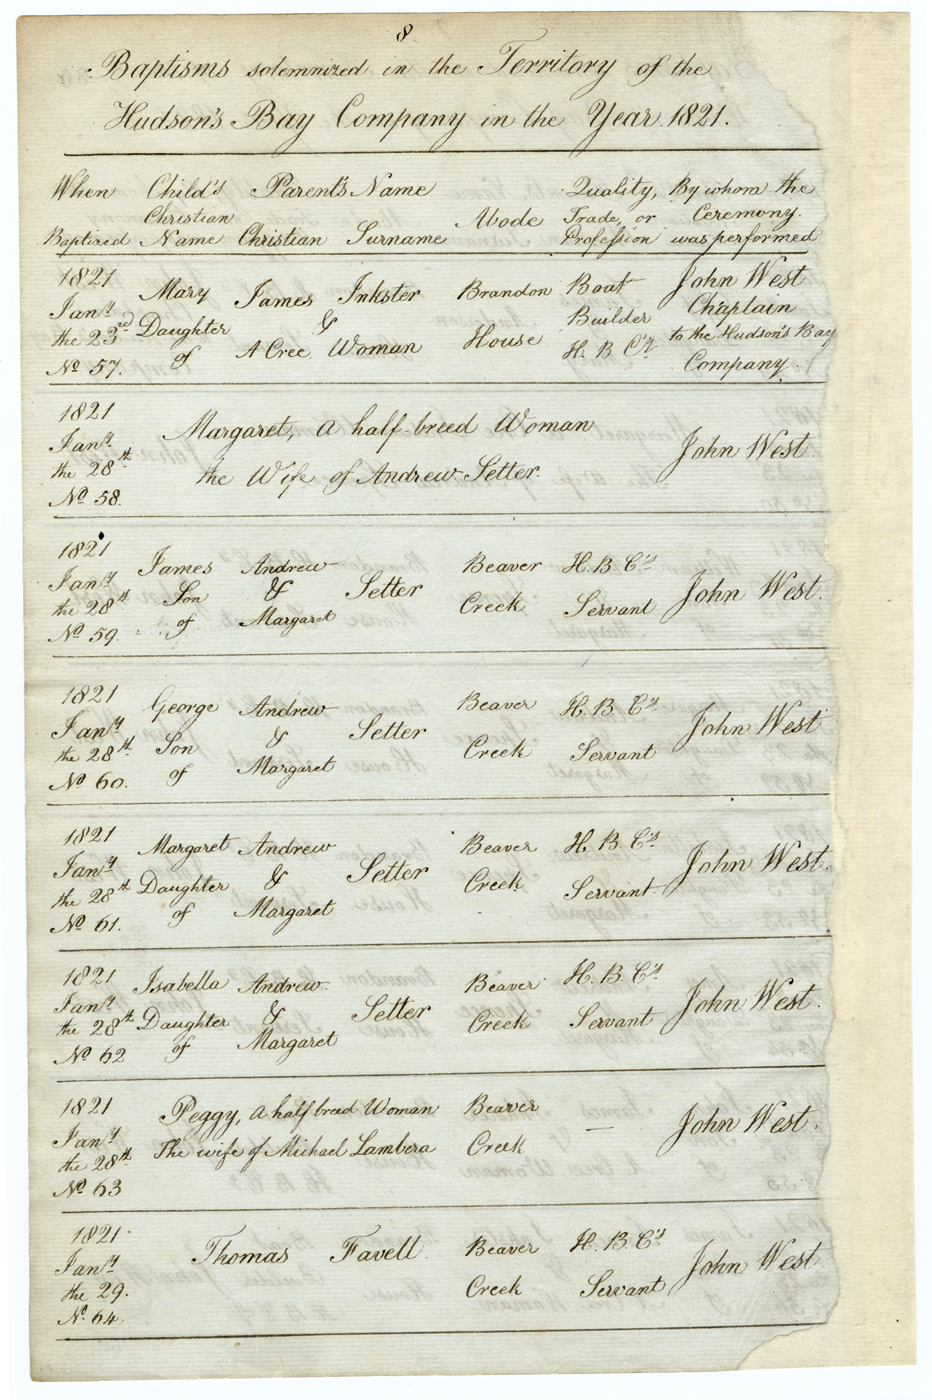 8
Baptisms solemnized in the Territory of the
Hudson's Bay Company in the Year 1821.
When Baptized
Child's Christian Name
Parent's Name
Christian Surname
Abode
Quality, Trade, or Profession
By whom the Ceremony was performed
1821
Jany
the 23rd
No 57.
Mary
Daughter
of
James Inkster
&
A Cree Woman
Brandon
House
Boat
Builder
H. B Cy
John West
Chaplain
to the Hudson's Bay
Company.
1821
Jany
the 28th
No 58.
Margaret, a half-breed Woman
the Wife of Andrew Setter.
John West
1821
Jany
the 28th
No 59.
James
Son
of
Andrew
&
Margaret
Setter
Beaver
Creek
H. B. Cys
Servant
John West.
1821
Jany
the 28th
No 60.
George
Son
of
Andrew
&
Margaret
Setter
Beaver
Creek
H. B. Cys
Servant
John West
1821
Jany
the 28th
No 61.
Margaret
Daughter
of
Andrew
&
Margaret
Setter
Beaver
Creek
H. B. Cys
Servant
John West.
1821
Jany
the 28th
No 62
Isabella
Daughter
of
Andrew
&
Margaret
Setter
Beaver
Creek
H. B. Cys
Servant
John West.
1821
Jany
the 28th
No 63
Peggy, a half breed Woman
The wife of Michael Lambera
Beaver
Creek
—
John West.
1821
Jany
the 29.
No 64.
Thomas Favell.
Beaver
Creek
H. B. Cys
Servant
John West